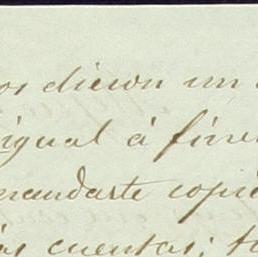 os dieron un
igual á fin
mandarte copi
as cuentas; t